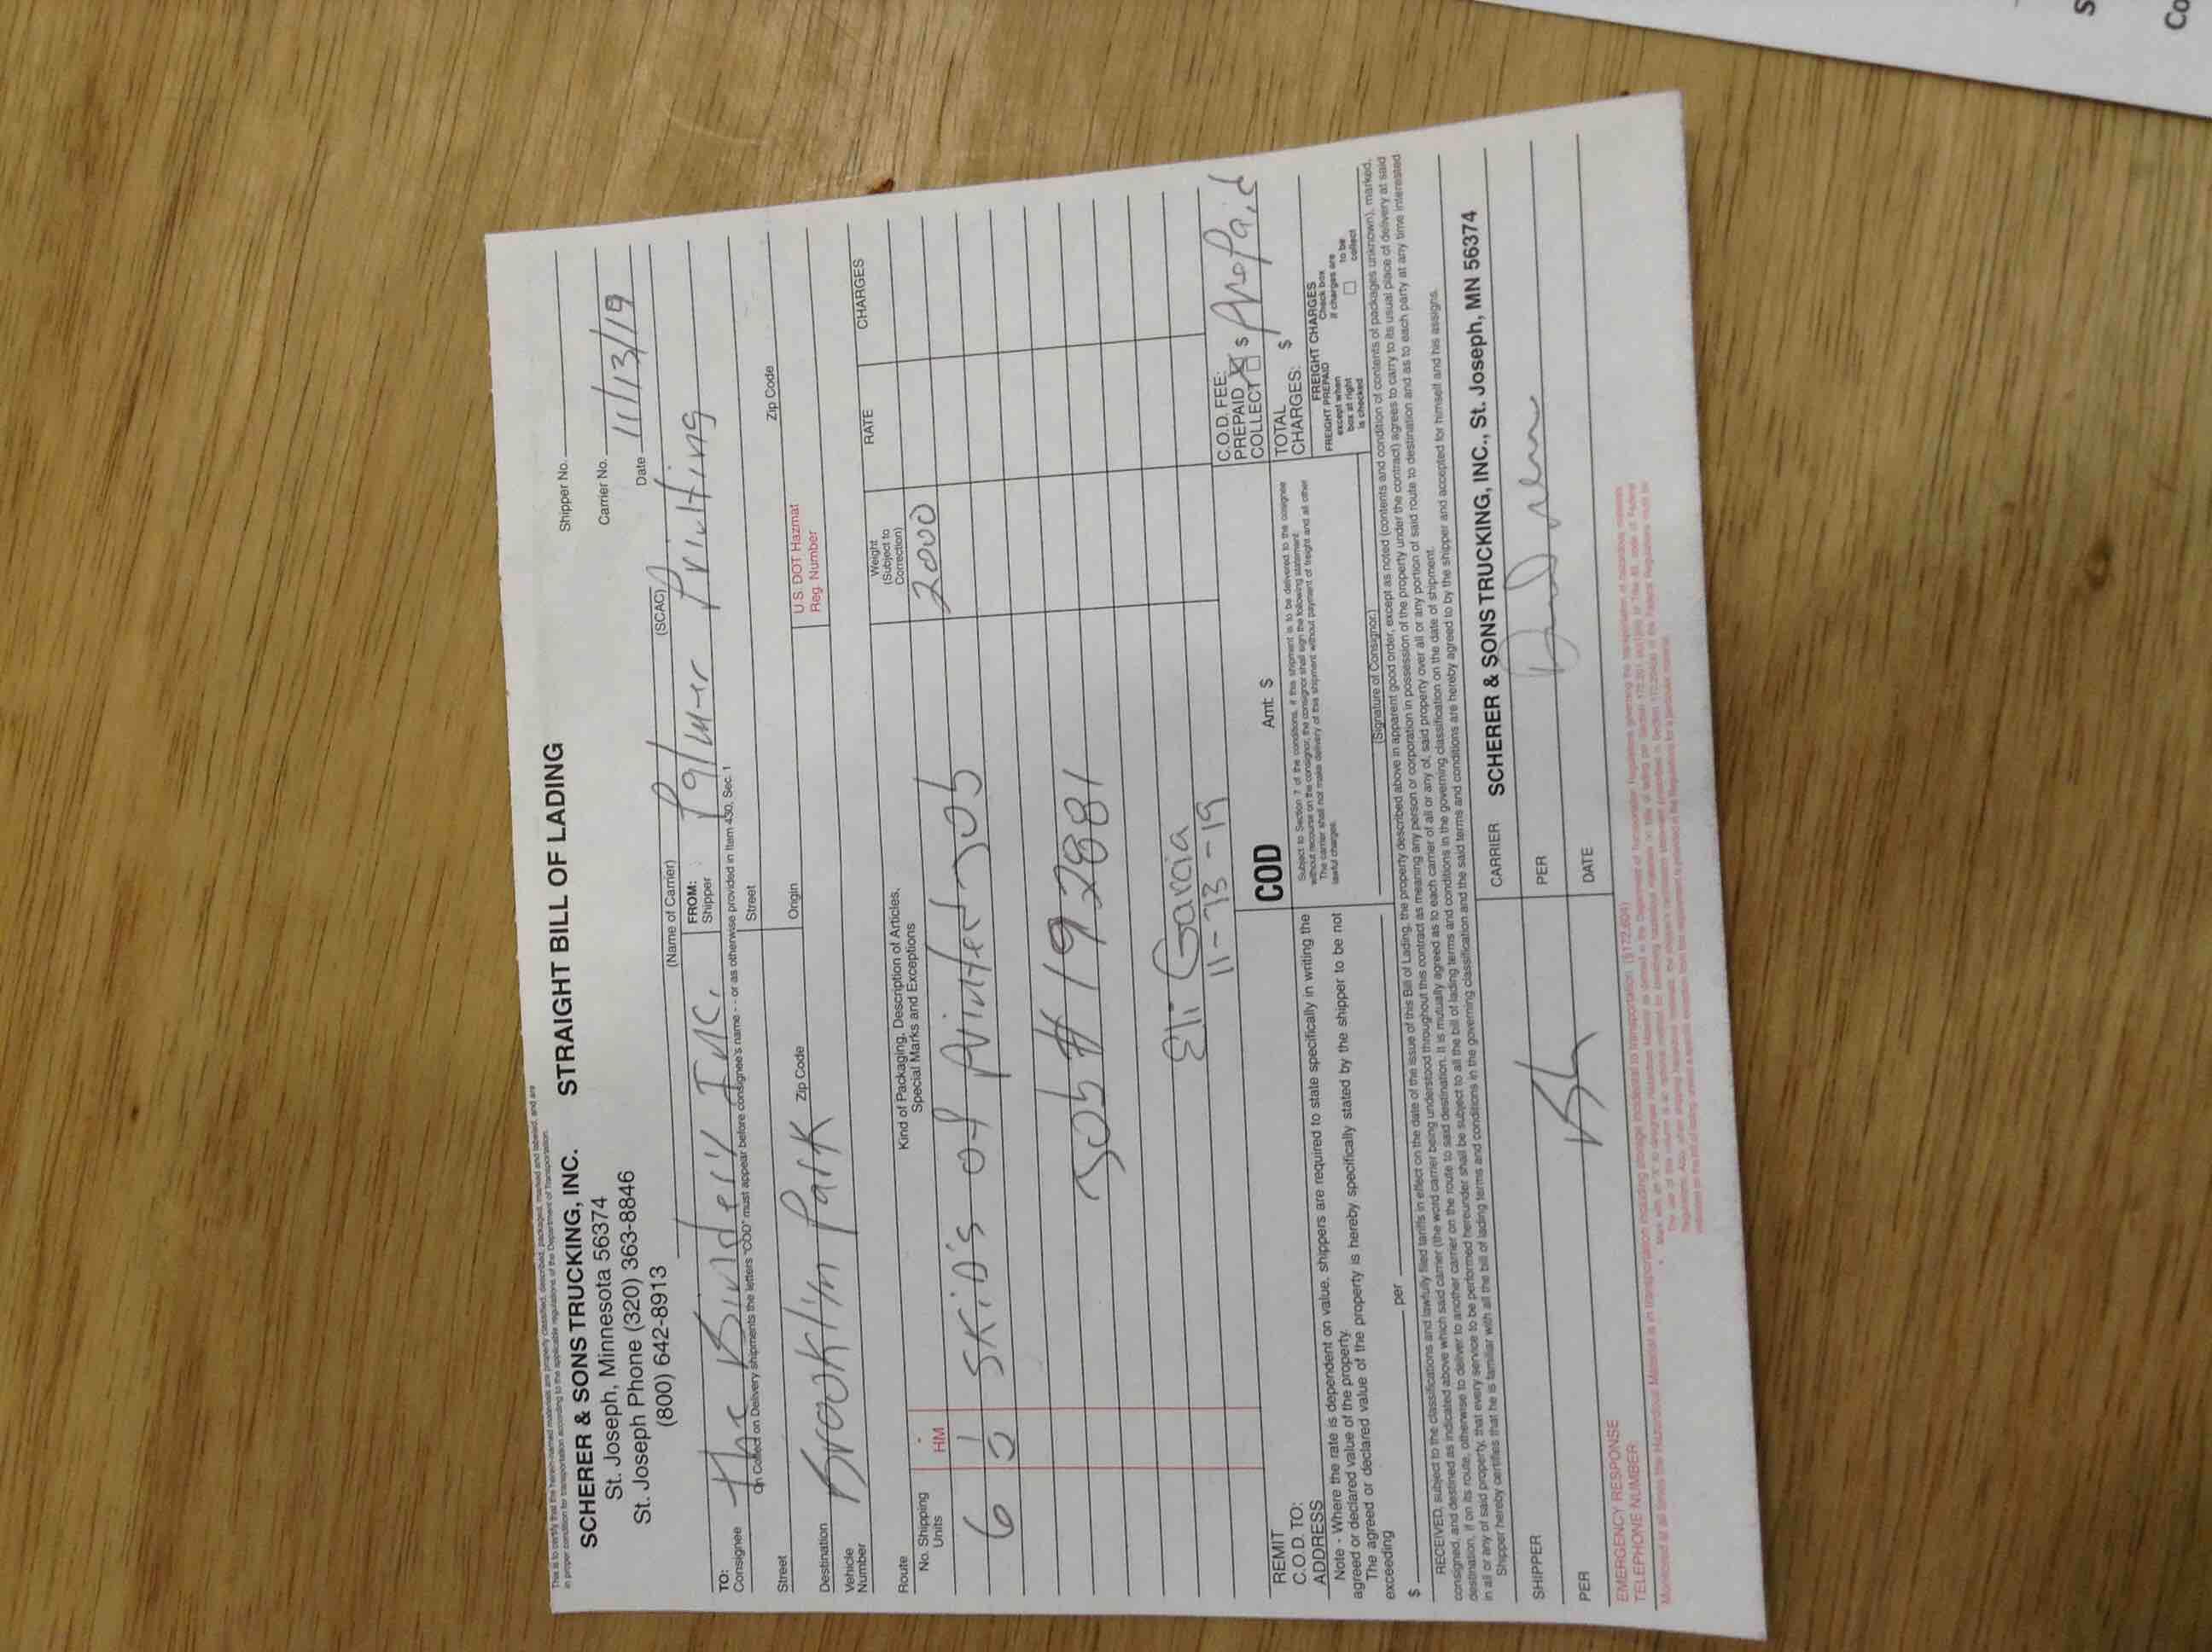 This is to certify that the herein-named materials are properly classified, described, packaged, marked and labeled, and are
in proper condition for transportation according to the applicable regulations of the Department of Transportation.
SCHERER & SONS TRUCKING, INC. STRAIGHT BILL OF LADING
St. Joseph, Minnesota 56374
St. Joseph Phone (320) 363-8846
(800) 642-8913
Shipper No.
Carrier No.
Date 11/13/19
(Name of Carrier) (SCAC)
TO: Consignee The Bindery Inc.
FROM: Shipper Palmer Printing
On Collect on Delivery shipments the letters "COD" must appear before consignee's name - - or as otherwise provided in Item 430, Sec. 1
Street Street Zip Code
Destination Brooklyn Park Zip Code Origin
Vehicle Number U.S. DOT Hazmat Reg. Number
Route
No. Shipping Units HM Kind of Packaging, Description of Articles, Special Marks and Exceptions Weight (Subject to Correction) RATE CHARGES
6 SKiD's of Printed Job 2000
Job # 192881
Eli Garcia
11-13-19
REMIT C.O.D. TO: ADDRESS
COD Amt. $
C.O.D. FEE:
PREPAID
COLLECT $ PrePaid
TOTAL CHARGES: $
Note - Where the rate is dependent on value, shippers are required to state specifically in writing the
agreed or declared value of the property.
The agreed or declared value of the property is hereby specifically stated by the shipper to be not
exceeding
$ per
Subject to Section 7 of the conditions, if this shipment is to be delivered to the consignee
without recourse on the consignor, the consignor shall sign the following statement:
The carrier shall not make delivery of this shipment without payment of freight and all other
lawful charges.
(Signature of Consignor.)
FREIGHT CHARGES
FREIGHT PREPAID except when box at right is checked
Check box if charges are to be collect
RECEIVED, subject to the classifications and lawfully filed tariffs in effect on the date of the issue of this Bill of Lading, the property described above in apparent good order, except as noted (contents and condition of contents of packages unknown), marked,
consigned, and destined as indicated above which said carrier (the word carrier being understood throughout this contract as meaning any person or corporation in possession of the property under the contract) agrees to carry to its usual place of delivery at said
destination, if on its route, otherwise to deliver to another carrier on the route to said destination. It is mutually agreed as to each carrier of all or any of, said property over all or any portion of said route to destination and as to each party at any time interested
in all or any of said property, that every service to be performed hereunder shall be subject to all the bill of lading terms and conditions in the governing classification on the date of shipment.
Shipper hereby certifies that he is familiar with all the bill of lading terms and conditions in the governing classification and the said terms and conditions are hereby agreed to by the shipper and accepted for himself and his assigns.
SHIPPER
CARRIER SCHERER & SONS TRUCKING, INC., St. Joseph, MN 56374
PER
PER
DATE
EMERGENCY RESPONSE
TELEPHONE NUMBER
Monitored at all times the Hazardous Material is in transportation including storage incidental to transportation (§172.604)